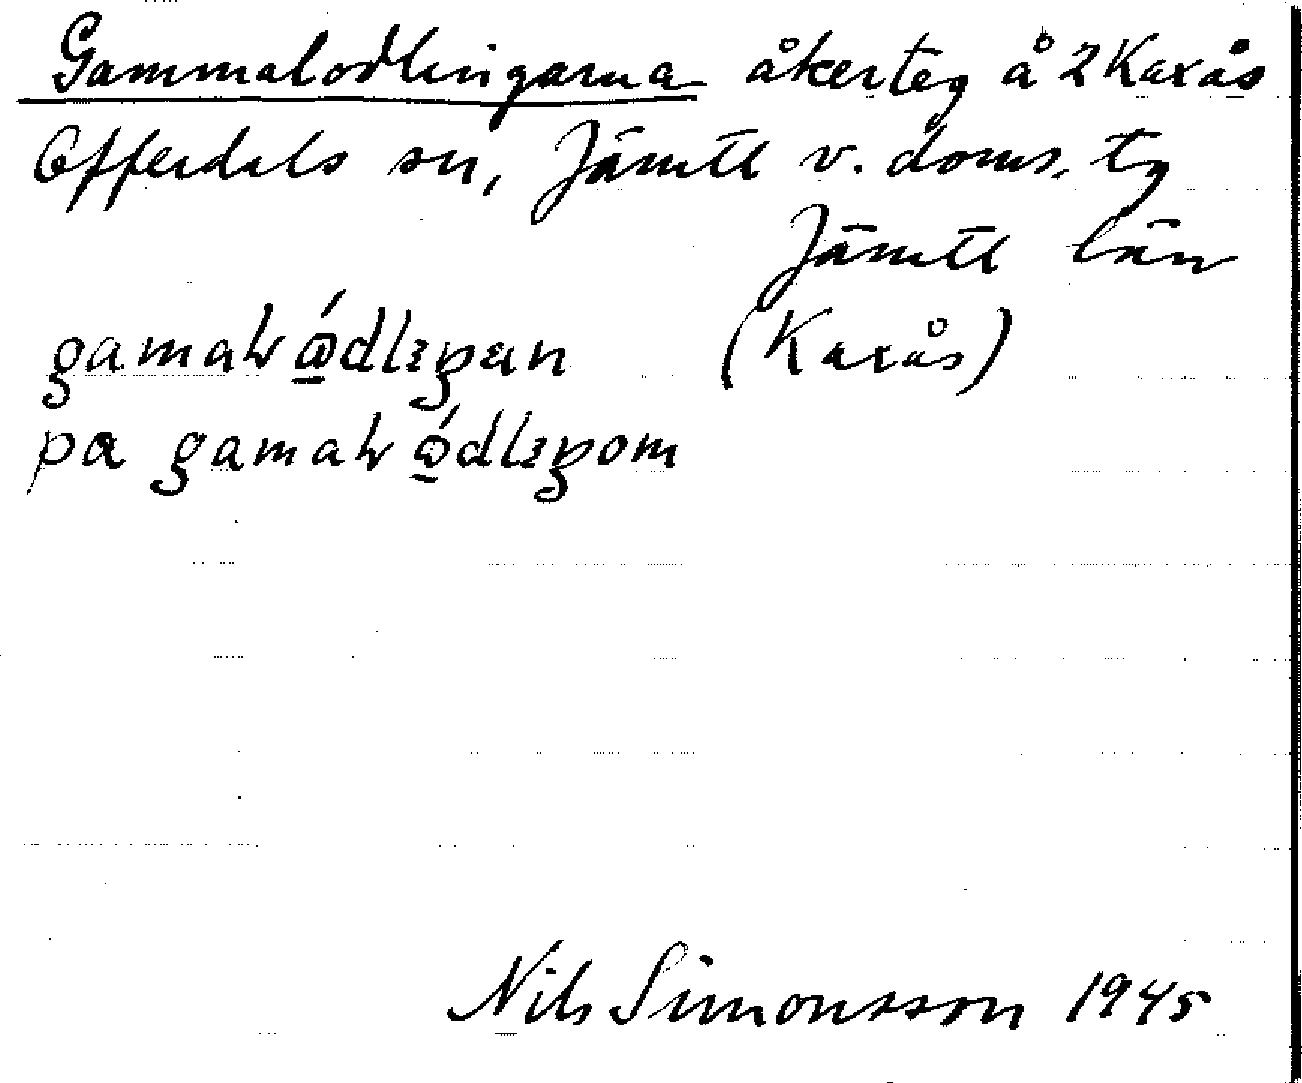 Gammalodlingarna åkerteg å 2 Kaxås
Offerdals sn, Jämtl v. doms. tg
Jämtl län
gamaƚώ̲dlıŋan (Kaxås)
pa gamaƚώ̲dlıŋom
Nils Simonsson 1945